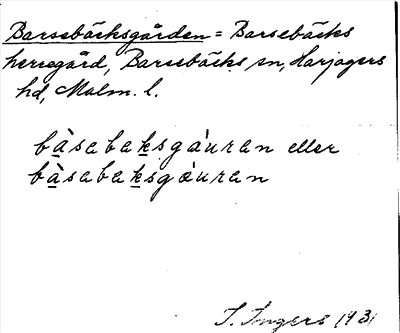 Barsebäcksgården = Barsebäcks
herregård, Barsebäcks sn, Harjagers
hd, Malm. l.
bàsabaksgàuran eller
bàsabaksgáuran
I. Ingers 1931